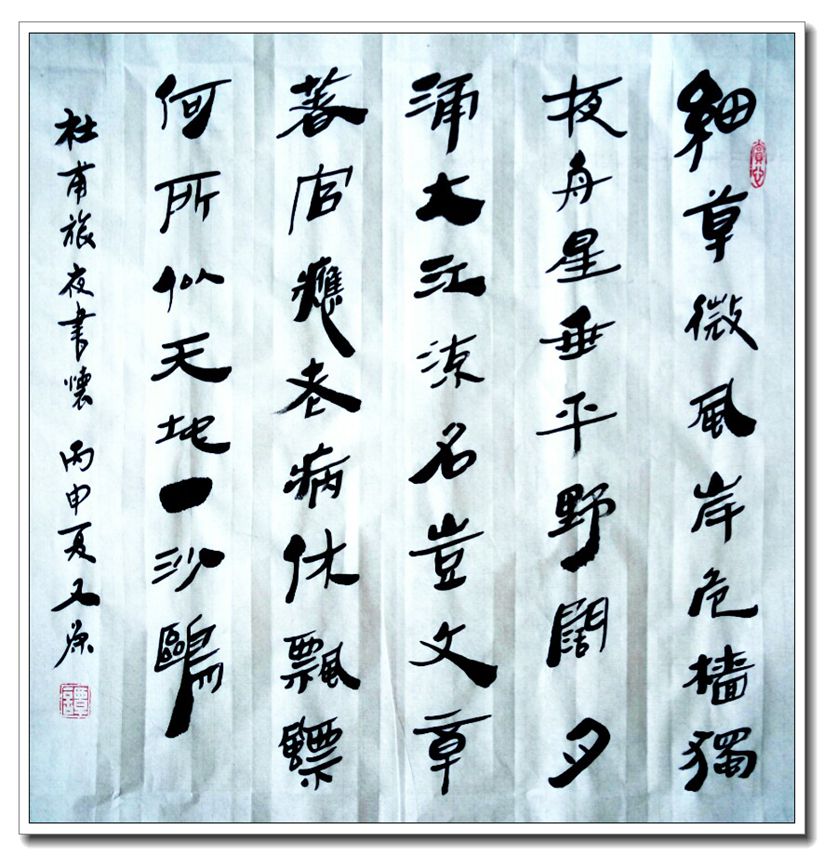 細草微風岸危檣獨
夜舟星垂平野闊月
涌大江流名豈文章
著官應老病休飄飄
何所似天地一沙鷗
杜甫旅夜書懷 丙申夏又